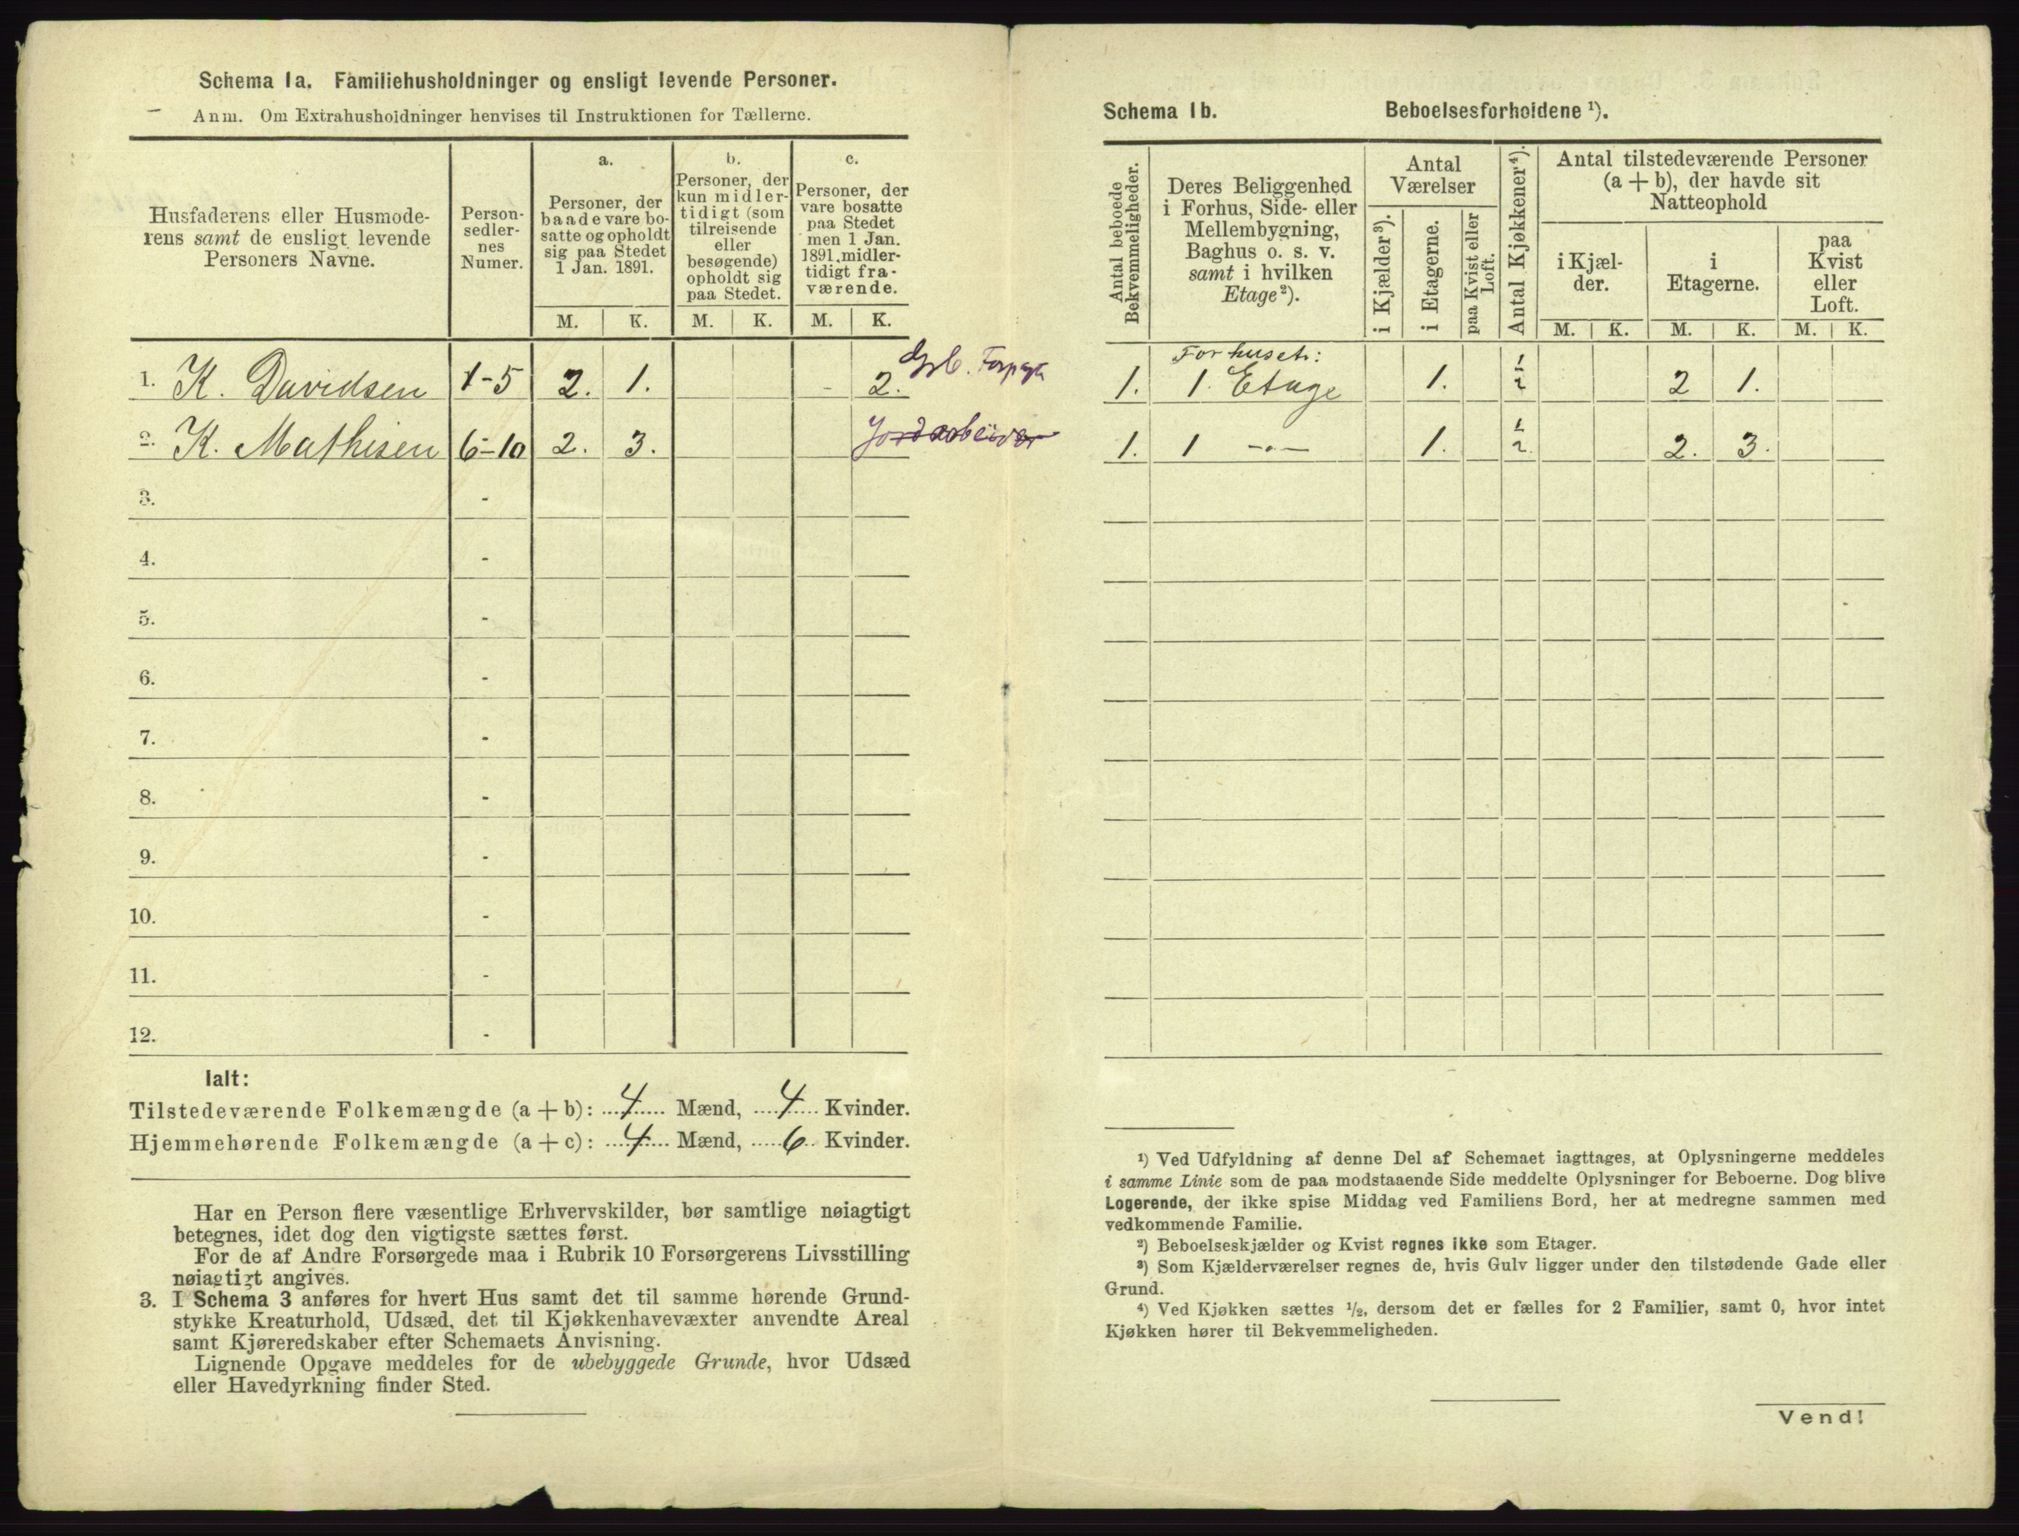 Schema 1a. Familiehusholdninger og ensligt levende Personer.
Anm. Om Extrahusholdninger henvises til Instruktionen for Tællerne.
Husfaderens eller Husmoderens samt de ensligt levende Personers Navne.
Personsedlernes Numer.
a.
Personer, der baade vare bosatte og opholdt sig paa Stedet 1 Jan. 1891.
b.
Personer, der kun midlertidigt (som tilreisende eller besøgende) opholdt sig paa Stedet.
c.
Personer, der vare bosatte paa Stedet men 1 Jan. 1891 midlertidigt fraværende.
M. K. M. K. M. K.
1. K. Davidsen 1-5 2. 1. - 2.
2. K. Mathisen 6-10 2. 3. Jordarbeider
3. -
4. -
5. -
6. -
7. -
8. -
9. -
10. -
11. -
12. -
Ialt:
Tilstedeværende Folkemængde (a + b): 4 Mænd, 4 Kvinder.
Hjemmehørende Folkemængde (a + c): 4 Mænd, 6 Kvinder.
Har en Person flere væsentlige Erhvervskilder, bør samtlige nøiagtigt
betegnes, idet dog den vigtigste sættes først.
For de af Andre Forsørgede maa i Rubrik 10 Forsørgerens Livsstilling
nøiagtigt angives.
3. I Schema 3 anføres for hvert Hus samt det til samme hørende Grund-
stykke Kreaturhold, Udsæd, det til Kjøkkenhavevæxter anvendte Areal
samt Kjøreredskaber efter Schemaets Anvisning.
Lignende Opgave meddeles for de ubebyggede Grunde, hvor Udsæd
eller Havedyrkning finder Sted.
Schema 1b. Beboelsesforholdene ¹).
Antal beboede Bekvemmeligheder.
Deres Beliggenhed i Forhus, Side- eller Mellembygning, Baghus o. s. v. samt i hvilken Etage²).
Antal Værelser
i Kjælder³).
i Etagerne.
paa Kvist eller Loft.
Antal Kjøkkener⁴).
Antal tilstedeværende Personer (a + b), der havde sit Natteophold
i Kjælder.
i Etagerne.
paa Kvist eller Loft.
M. K. M. K. M. K.
Forhuset:
1. 1. Etage 1. ½ 2 1.
1. 1 -"- 1. ½. 2. 3.
¹) Ved Udfyldning af denne Del af Schemaet iagttages, at Oplysningerne meddeles
i samme Linie som de paa modstaaende Side meddelte Oplysninger for Beboerne. Dog blive
Logerende, der ikke spise Middag ved Familiens Bord, her at medregne sammen med
vedkommende Familie.
²) Beboelseskjælder og Kvist regnes ikke som Etager.
³) Som Kjælderværelser regnes de, hvis Gulv ligger under den tilstødende Gade eller
Grund.
⁴) Ved Kjøkken sættes ½, dersom det er fælles for 2 Familier, samt 0, hvor intet
Kjøkken hører til Bekvemmeligheden.
Vend!